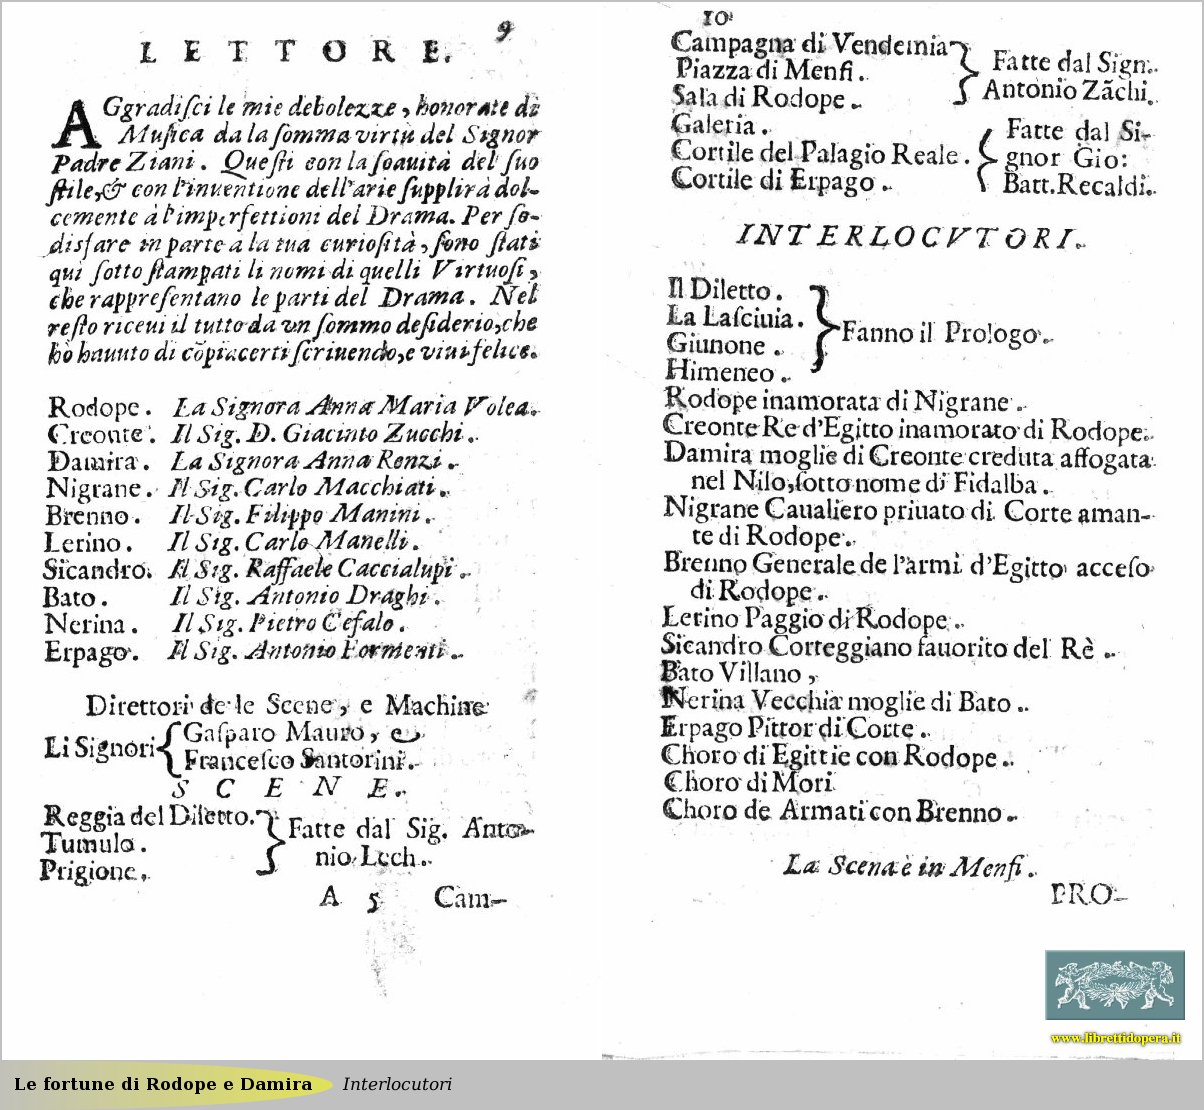 9
LETTORE.
AGgradiſci le mie debolezze, honorate di
Muſica da la ſomma virtù del Signor
Padre Ziani. Queſti con la ſoauità del ſuo
ſtile,& con l'inuentione dell'arie ſupplirà dol-
cemente à l'imperfettioni del Drama. Per ſo-
disfare in parte a la tua curioſità, ſono ſtati
qui ſotto ſtampati li nomi di quelli Virtuoſi,
che rappreſentano le parti del Drama. Nel
reſto riceui il tutto da vn ſommo deſiderio,che
hò hauuto di cõpiacerti ſcriuendo,e viui felice.
Rodope. La Signora Anna Maria Volea.
Creonte. Il Sig. D. Giacinto Zucchi.
Damira. La Signora Anna Renzi.
Nigrane. Il Sig. Carlo Macchiati.
Brenno. Il Sig. Filippo Manini.
Lerino. Il Sig. Carlo Manelli.
Sicandro. Il Sig. Raffaele Caccialupi.
Bato. Il Sig. Antonio Draghi.
Nerina. Il Sig. Pietro Cefalo.
Erpago. Il Sig. Antonio Formenti.
Direttori de le Scene, e Machine
Li Signori Gaſparo Mauro, e
Franceſco Santorini.
SCENE.
Reggia del Diletto.
Tumulo.
Prigione.
Fatte dal Sig. Anto-
nio Lech.
A 5 Cam-
10
Campagna di Vendemia
Piazza di Menfi.
Sala di Rodope.
Fatte dal Sign.
Antonio Zãchi.
Galeria.
Cortile del Palagio Reale.
Cortile di Erpago.
Fatte dal Si-
gnor Gio:
Batt. Recaldi.
INTERLOCVTORI.
Il Diletto.
La Laſciuia.
Giunone.
Himeneo.
Fanno il Prologo.
Rodope inamorata di Nigrane.
Creonte Re d'Egitto inamorato di Rodope.
Damira moglie di Creonte creduta affogata
nel Nilo,ſotto nome di Fidalba.
Nigrane Caualiero priuato di Corte aman-
te di Rodope.
Brenno Generale de l'armi d'Egitto acceſo
di Rodope.
Lerino Paggio di Rodope.
Sicandro Corteggiano fauorito del Rè.
Bato Villano,
Nerina Vecchia moglie di Bato.
Erpago Pittor di Corte.
Choro di Egittie con Rodope.
Choro di Mori
Choro de Armati con Brenno.
La Scena è in Menfi.
PRO-
www.librettidopera.it
Le fortune di Rodope e Damira Interlocutori